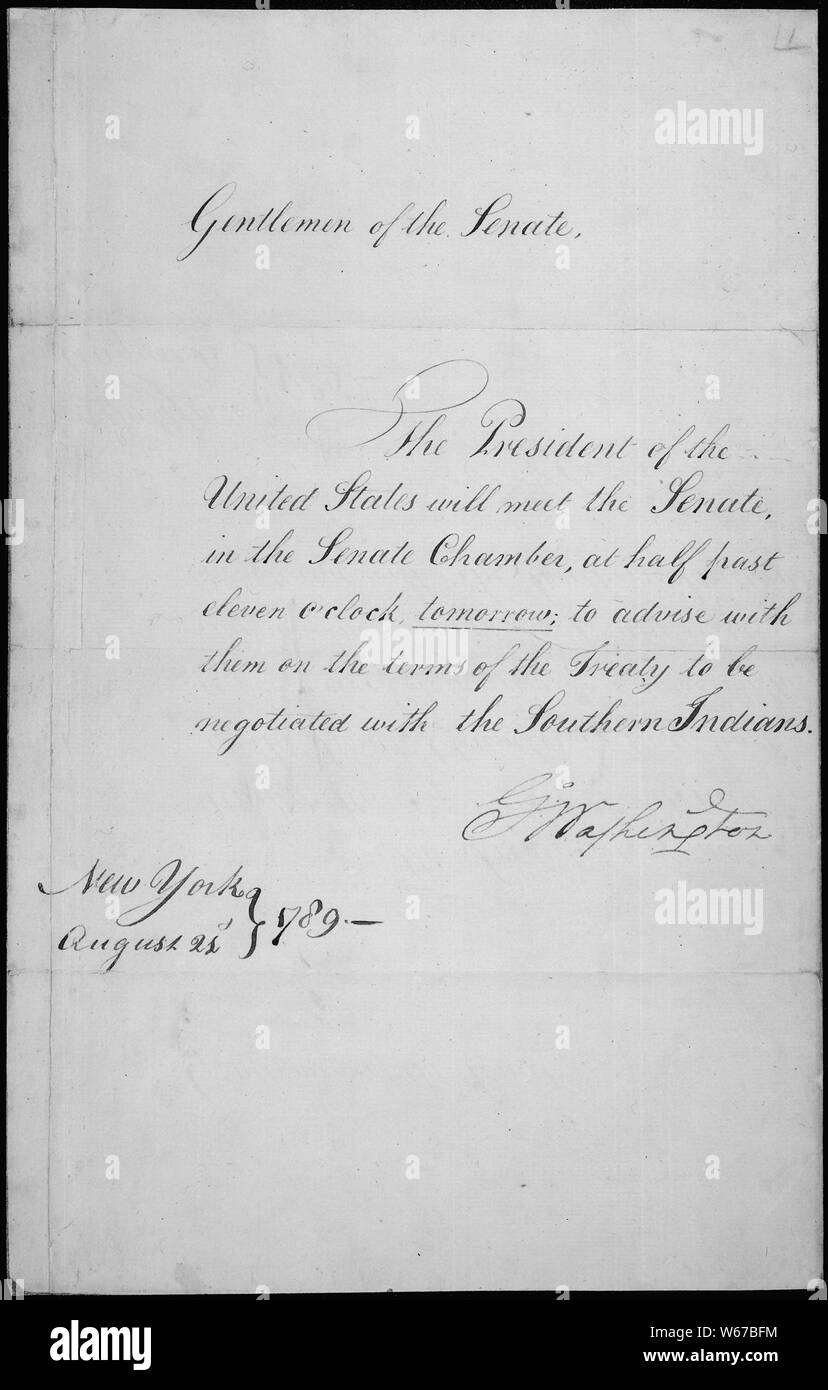 Gentlemen of the Senate,
The President of the
United States will meet the Senate,
in the Senate Chamber, at half past
eleven o'clock, tomorrow; to advise with
them on the terms of the Treaty to be
negotiated with the Southern Indians.
G:Washington
New York
August 21st } 1789.—
alamy
alamy
alamy
alamy
a alamy stock photo
W67BFM
www.alamy.com